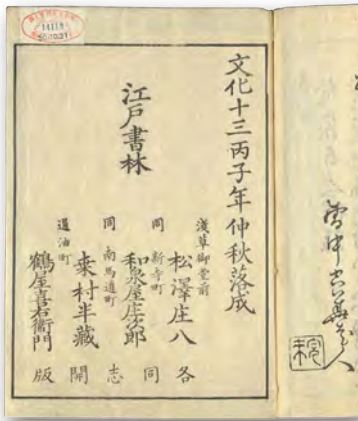 文化十三丙子年仲秋落成
江戸書林
浅草御堂前
松澤庄八
同 新寺町
和泉屋庄次郎
同 南馬道町
桒村半藏
通油町
鶴屋喜右衛門
各同志開版
14119